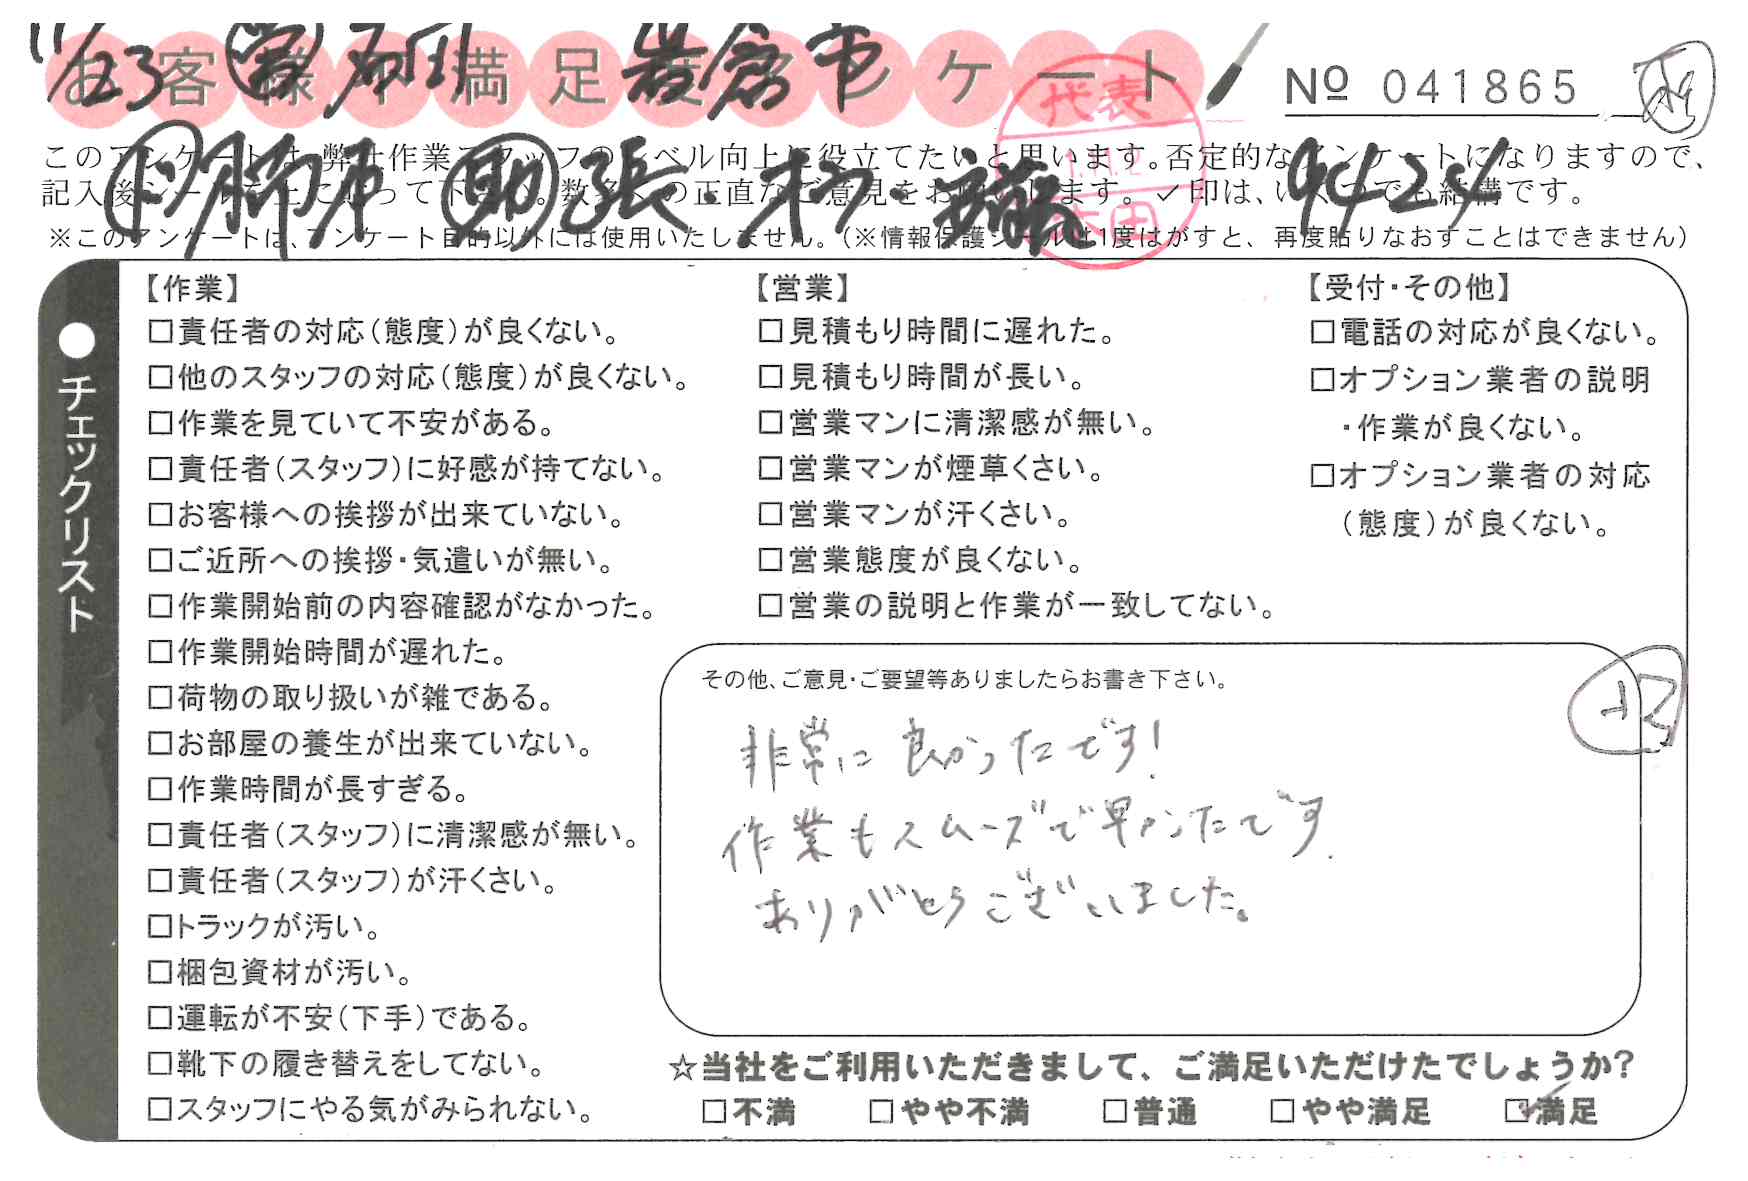 11/23 営 石川 岩倉市
お客様不満足度アンケート
№ 041865
このアンケートは、弊社作業スタッフのレベル向上に役立てたいと思います。否定的なアンケートになりますので、
記入後シールを上に貼って下さい。数多くの正直なご意見をお願いします。✓印は、いくつでも結構です。
助 張・
※このアンケートは、アンケート目的以外には使用いたしません。(※情報保護シールは1度はがすと、再度貼りなおすことはできません)
代表
●チェックリスト
【作業】
□責任者の対応(態度)が良くない。
□他のスタッフの対応(態度)が良くない。
□作業を見ていて不安がある。
□責任者(スタッフ)に好感が持てない。
□お客様への挨拶が出来ていない。
□ご近所への挨拶・気遣いが無い。
□作業開始前の内容確認がなかった。
□作業開始時間が遅れた。
□荷物の取り扱いが雑である。
□お部屋の養生が出来ていない。
□作業時間が長すぎる。
□責任者(スタッフ)に清潔感が無い。
□責任者(スタッフ)が汗くさい。
□トラックが汚い。
□梱包資材が汚い。
□運転が不安(下手)である。
□靴下の履き替えをしてない。
□スタッフにやる気がみられない。
【営業】
□見積もり時間に遅れた。
□見積もり時間が長い。
□営業マンに清潔感が無い。
□営業マンが煙草くさい。
□営業マンが汗くさい。
□営業態度が良くない。
□営業の説明と作業が一致してない。
【受付・その他】
□電話の対応が良くない。
□オプション業者の説明
・作業が良くない。
□オプション業者の対応
(態度)が良くない。
その他、ご意見・ご要望等ありましたらお書き下さい。
非常に良かったです!
作業もスムーズで早かったです.
ありがとうございました。
☆当社をご利用いただきまして、ご満足いただけたでしょうか?
□不満 □やや不満 □普通 □やや満足 ☑満足